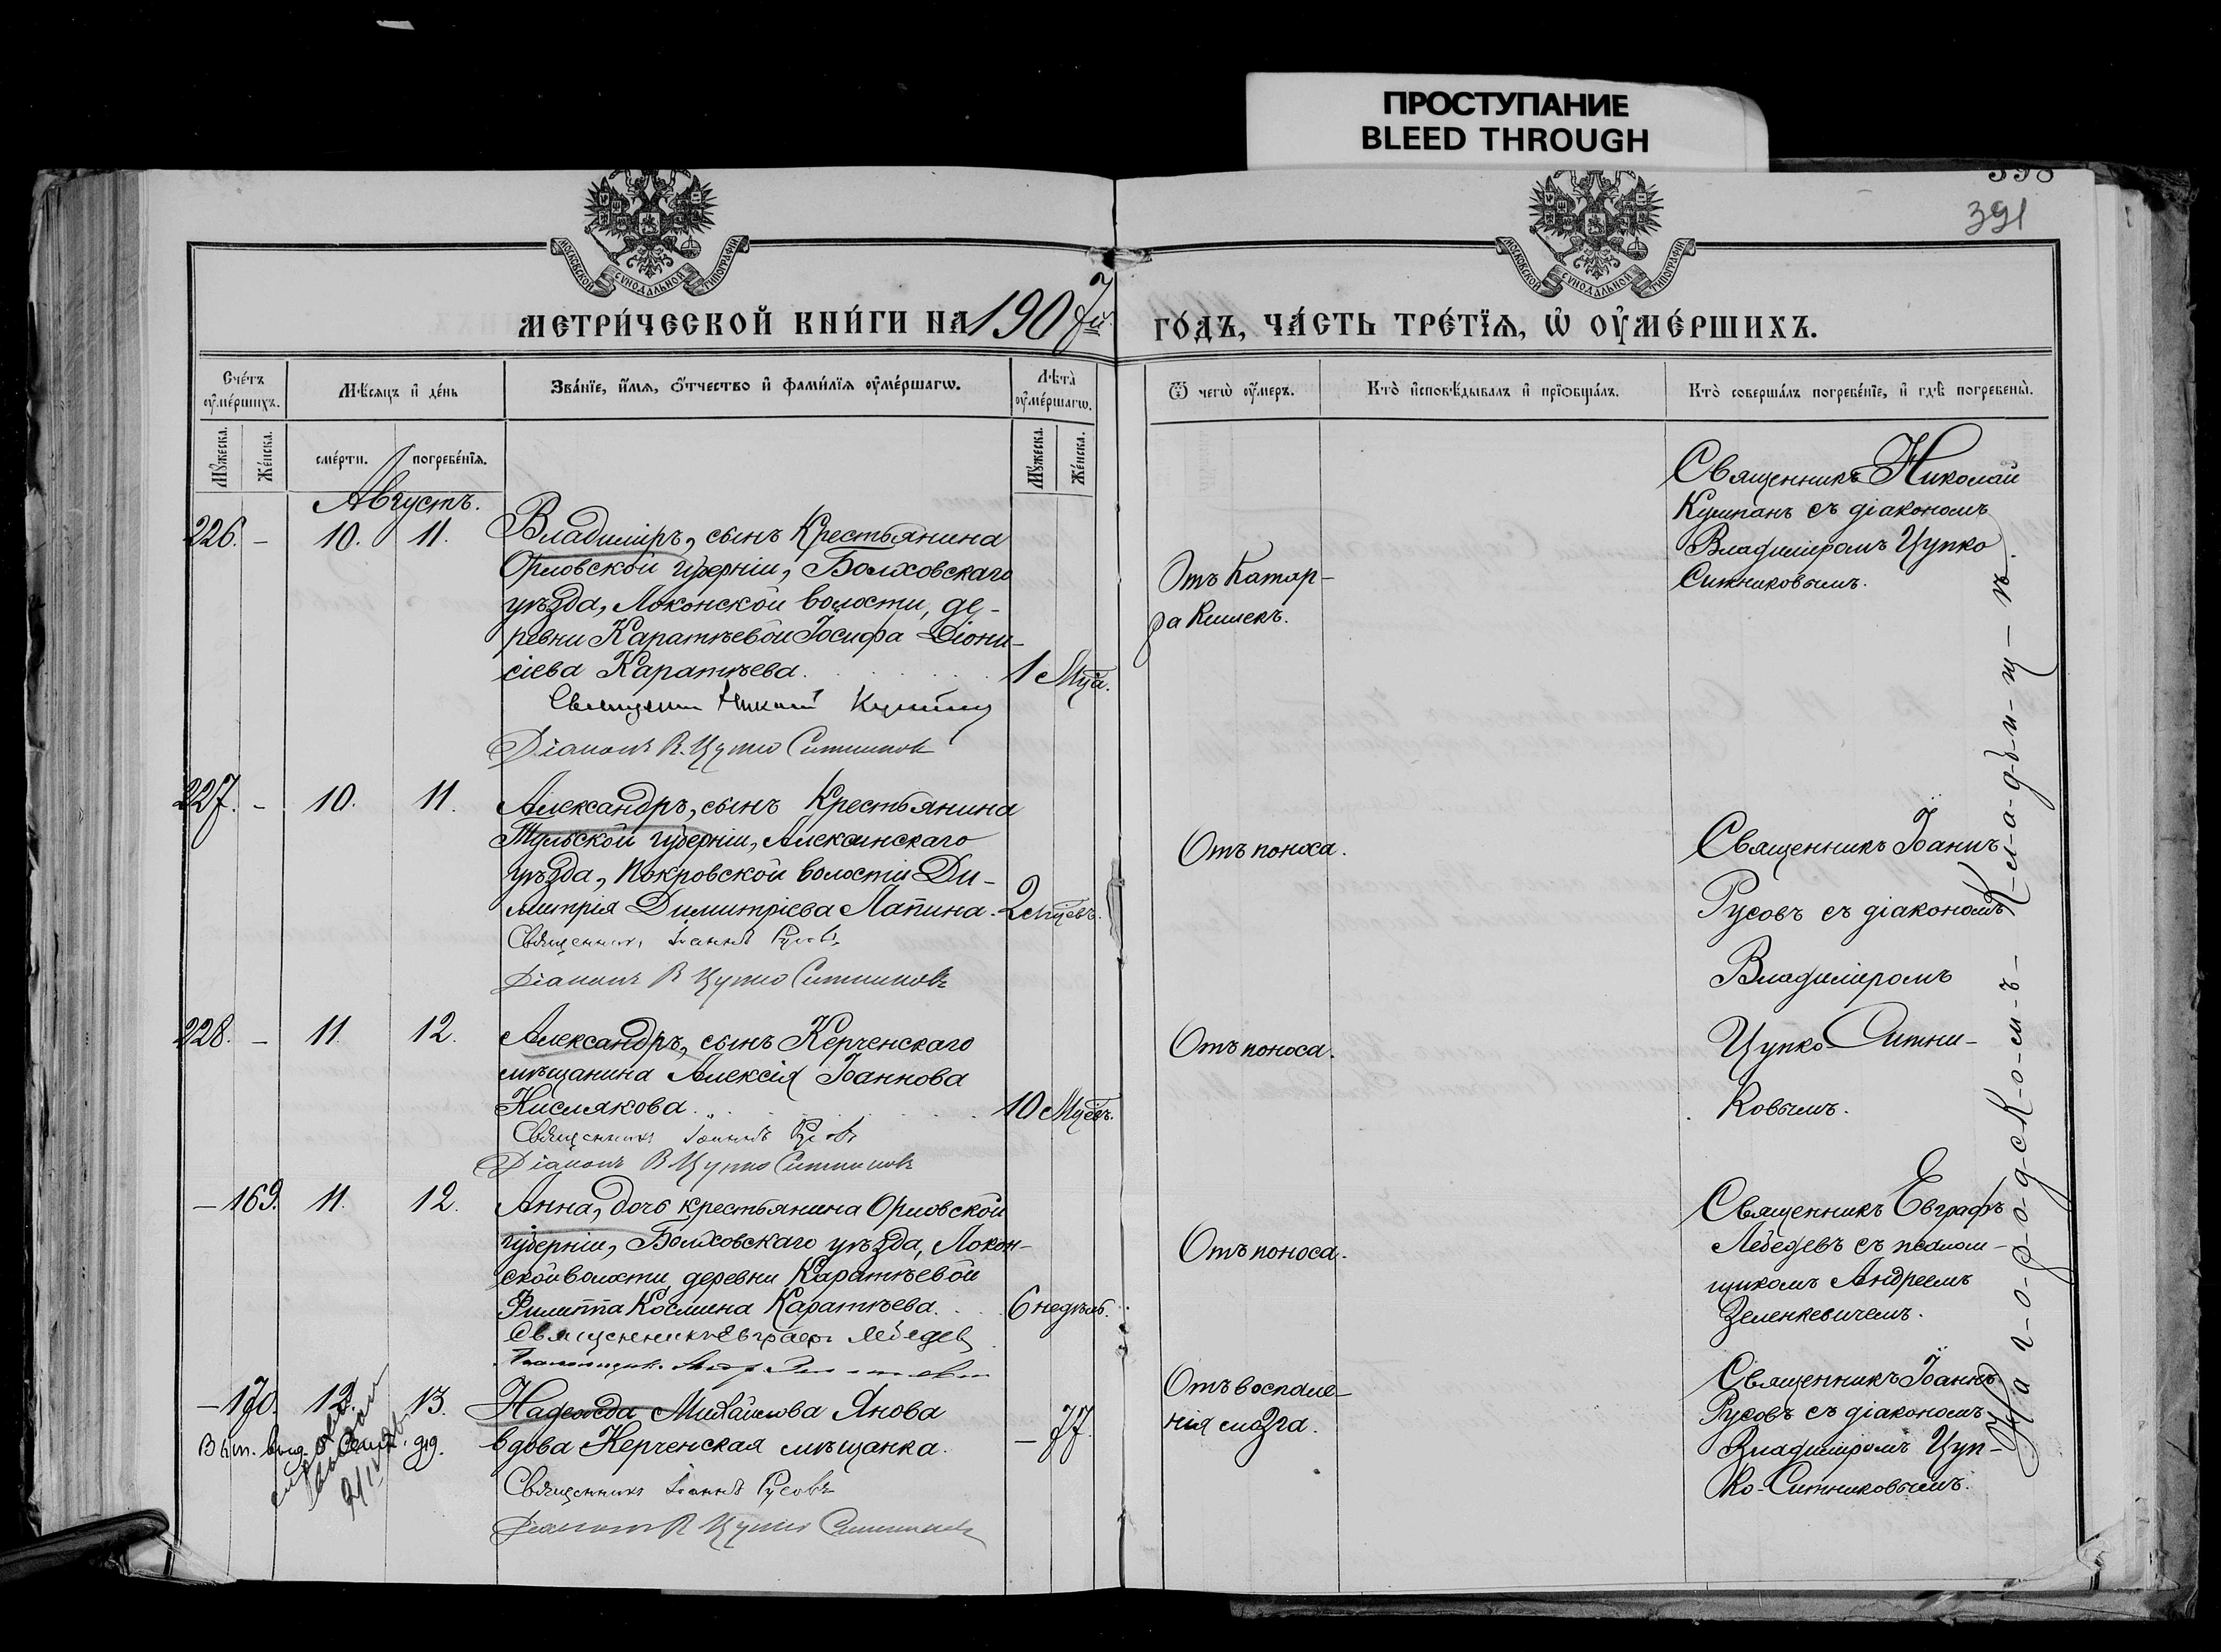 ПРОСТУПАНИЕ
BLEED THROUGH
391
МОСКОВСКОЙ СѴНОДАЛЬНОЙ ТИПОГРАФІИ
МОСКОВСКОЙ СѴНОДАЛЬНОЙ ТИПОГРАФІИ
МЕТРИ́ЧЕСКОЙ КНИ́ГИ НА 1907й
ГО́ДЪ, ЧА́СТЬ ТРЕ́ТЇѦ, Ѡ҆ ОУ҆МЕ́РШИХЪ.
Сче́тъ оу҆ме́ршихъ.
Мѣ́сяцъ и҆ де́нь
Зва́нїе, и҆́мѧ, ѻ҆́тчество и҆ фами́лїѧ оу҆ме́ршагѡ.
Лѣта̀ оу҆ме́ршагѡ.
Ѿ чегѡ̀ оу҆́меръ.
Кто̀ и҆сповѣ́дывалъ и҆ прїѻбща́лъ.
Кто̀ соверша́лъ погребе́нїе, и҆ гдѣ̀ погребены̀.
Мꙋ́жеска.
Же́нска.
сме́рти.
погребе́нїѧ.
Мꙋ́жеска.
Же́нска.
Августъ.
226. – 10. 11.
Владиміръ, сынъ Крестьянина
Орловской губерніи, Болховскаго
уѣзда, Локонской волости, де-
ревни Каратѣевой Іосифа Діони-
сіева Каратѣева.
1 Мца.
Священникъ Николай Кушпанъ
Діаконъ В. Цупко Ситниковъ
Отъ Катар-
ра Кишекъ.
Священникъ Николай
Кушпанъ съ діакономъ
Владиміромъ Цупко
Ситниковымъ.
227. – 10. 11.
Александръ, сынъ Крестьянина
Тульской губерніи, Алексинскаго
уѣзда, Покровской волости Ди-
митрія Димитріева Лапина.
2 мцевъ.
Священникъ Іоаннъ Русовъ
Діаконъ В Цупко Ситниковъ
Отъ поноса.
Священникъ Іоаннъ
Русовъ съ діакономъ
Владиміромъ
Цупко Ситни-
ковымъ.
228. – 11. 12.
Александръ, сынъ Керченскаго
мѣщанина Алексія Іоаннова
Кислякова
10 Мцевъ.
Священникъ Іоаннъ Русовъ
Діаконъ В Цупко Ситниковъ
Отъ поноса.
– 169. 11. 12.
Анна, дочь крестьянина Орловской
губерніи, Болховскаго уѣзда, Локон-
ской волости, деревни Каратѣевой
Филиппа Космина Каратѣева.
6 недѣль.
Священникъ Евграфъ Лебедев
Псаломщикъ
Отъ поноса.
Священникъ Евграфъ
Лебедевъ съ псалом-
щикомъ Андреемъ
Зеленкевичемъ.
– 170. 12. 13.
Надежда Михайлова Янова
вдова Керченская мѣщанка.
– 77.
Священникъ Іоаннъ Русовъ
Діаконъ В Цупко Ситниковъ
Отъ воспале-
нія мозга.
Священникъ Іоаннъ
Русовъ съ діакономъ
Владиміромъ Цуп-
ко-Ситниковымъ.
На г-о-р-о-д-с-к-о-м-ъ – К-л-а-д-б-и-щ-ѣ.